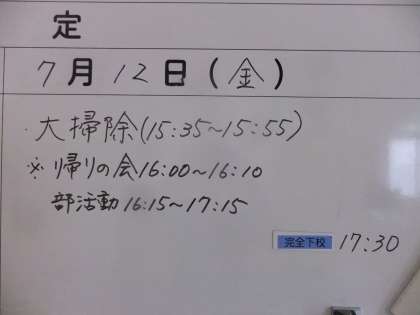 定
7月12日(金)
大掃除(15:35~15:55)
※帰りの会16:00~16:10
部活動16:15~17:15
完全下校 17:30